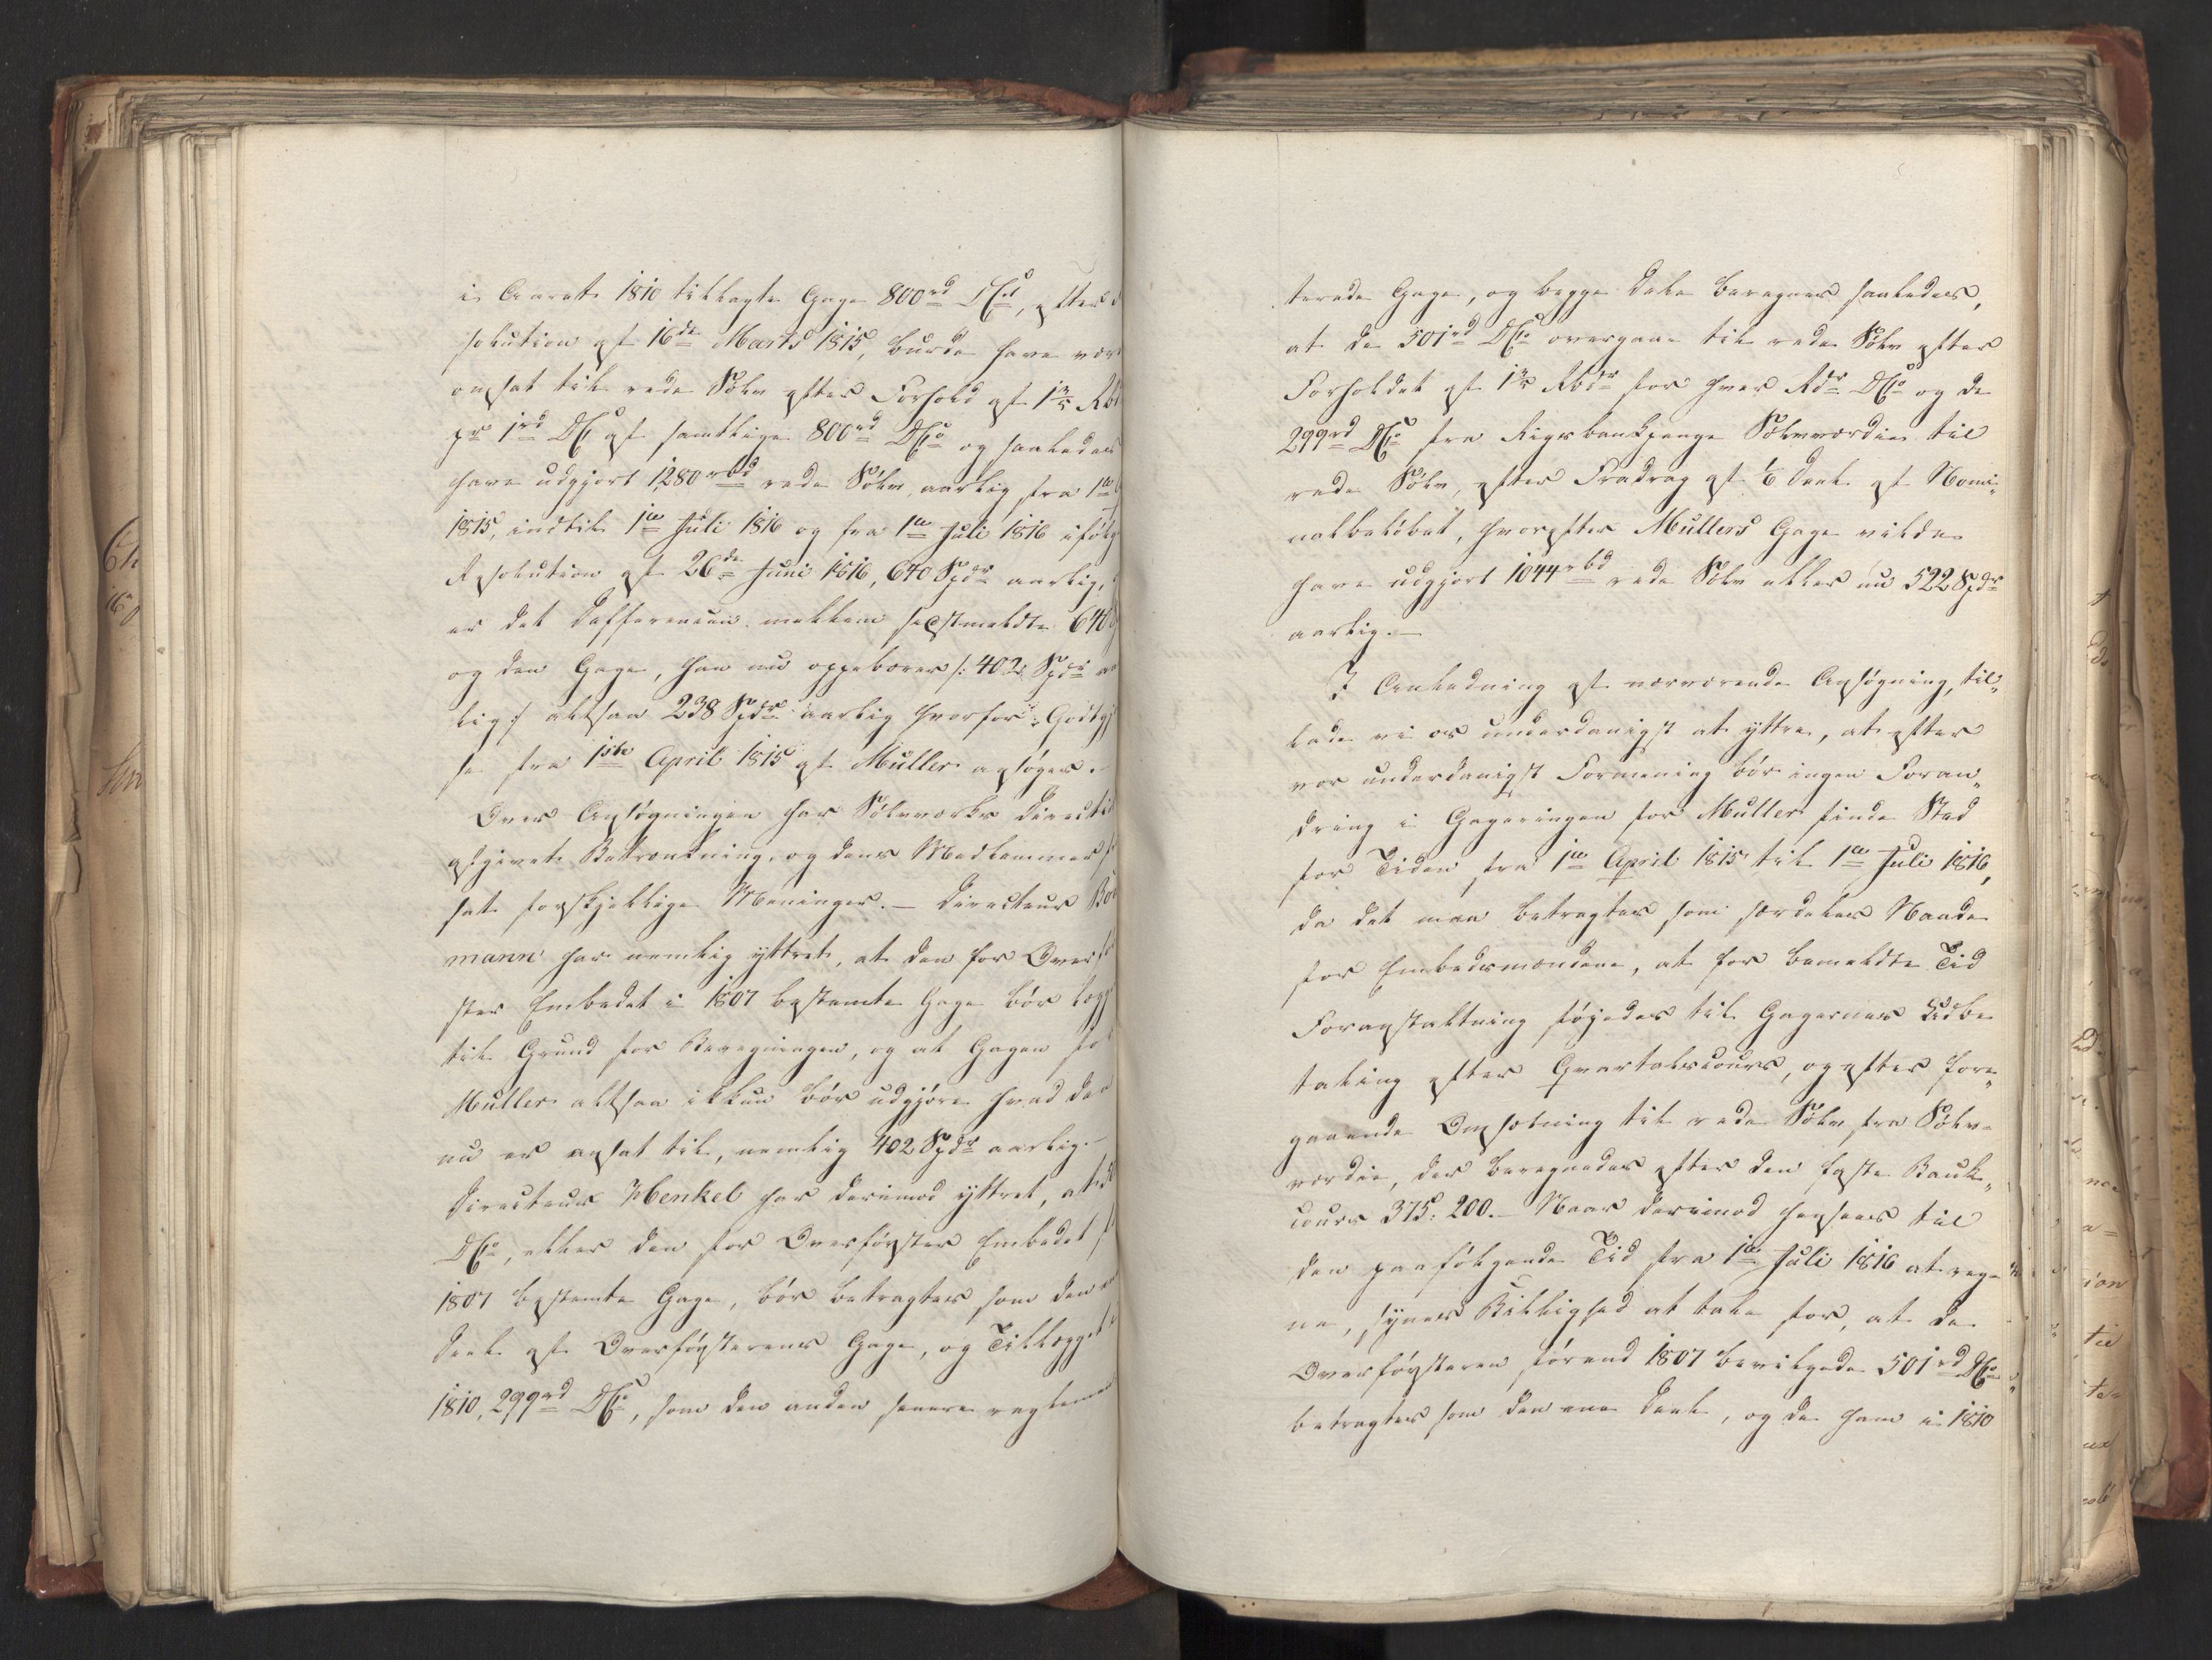 i Aaret 1810 tillagte Gage 800rd DCo, efter
solution af 16de Marts 1815, burde have vær
ansat til rede Sølv efter Forhold af 1 3/5 Rb
pr 1rd DC af samtlige 800rd DCo og saaledes
have udgjort 1280 rbd rede Sølv aarlig fra 1ste
1815, indtil 1ste Juli 1816 og fra 1ste Juli 1816 ifølg
Resolution af 26de Juni 1816, 640 Spdr aarlig,
er det Differencen mellem sidstmeldte 640
og den Gage, han nu oppebærer /: 402 Spdr aar
lig :/ altsaa 238 Spdr aarlig hvorfor Godtgj
se fra 1ste April 1815 af Müller ansøges.
Over Ansøgningen har Sølvværks Directi
afgivet Betænkning, og dens Medlemmer
sat forskjellige Meninger. — Directeur Bör
mann har nemlig yttret, at den for Overfør
ster Embedet i 1807 bestemte Gage bør lægg
til Grund for Beregningen, og at Gagen fo
Müller altsaa ikkun bør udgjøre hvad den
nu er ansat til, nemlig 402 Spdr aarlig. —
Directeur Henkel har derimod yttret, at
DCo, eller den for Overførster Embedet
1807 bestemte Gage, bør betragtes som den
Deel af Overførsterens Gage, og Tillægget
1810, 299rd DCo, som den anden senere reglemen
terede Gage, og begge Dele beregnes saaledes,
at de 501rd DCo overgaae til rede Sølv efter
Forholdet af 1 3/5 Rbdr for hver Rdr DCo og de
299rd DCo fra Rigsbankpenge Sølvværdie til
rede Sølv, efter Fradrag af 1/6 Deel af Nomi„
nalbeløbet, hvorefter Müllers Gage vilde
have udgjort 1044 rbd rede Sølv eller nu 522 Spdr
aarlig. —
I Anledning af nærværende Ansøgning, til„
lade vi os underdanigst at yttre, at efter
vor underdanigst Formening bør ingen Foran„
dring i Gageringen for Müller finde Sted
for Tiden fra 1ste April 1815 til 1ste Juli 1816,
da det maa betragtes som særdeles Naade
for Embedsmændene, at for bemeldte Tid
Foranstaltning føjedes til Gagernes Udbe
taling efter Qvartalscours, og efter fore„
gaaende Omsætning til rede Sølv fra Sølv-
værdie, der beregnedes efter den faste Bank„
cours 375: 200. — Naar derimod hensees til
den paafølgende Tid fra 1ste Juli 1816 at reg-
ne, synes Billighed at tale for, at de
Overførsteren førend 1807 bevilgede 501rd DCo
betragtes som den ene Deel, og de ham i 1810